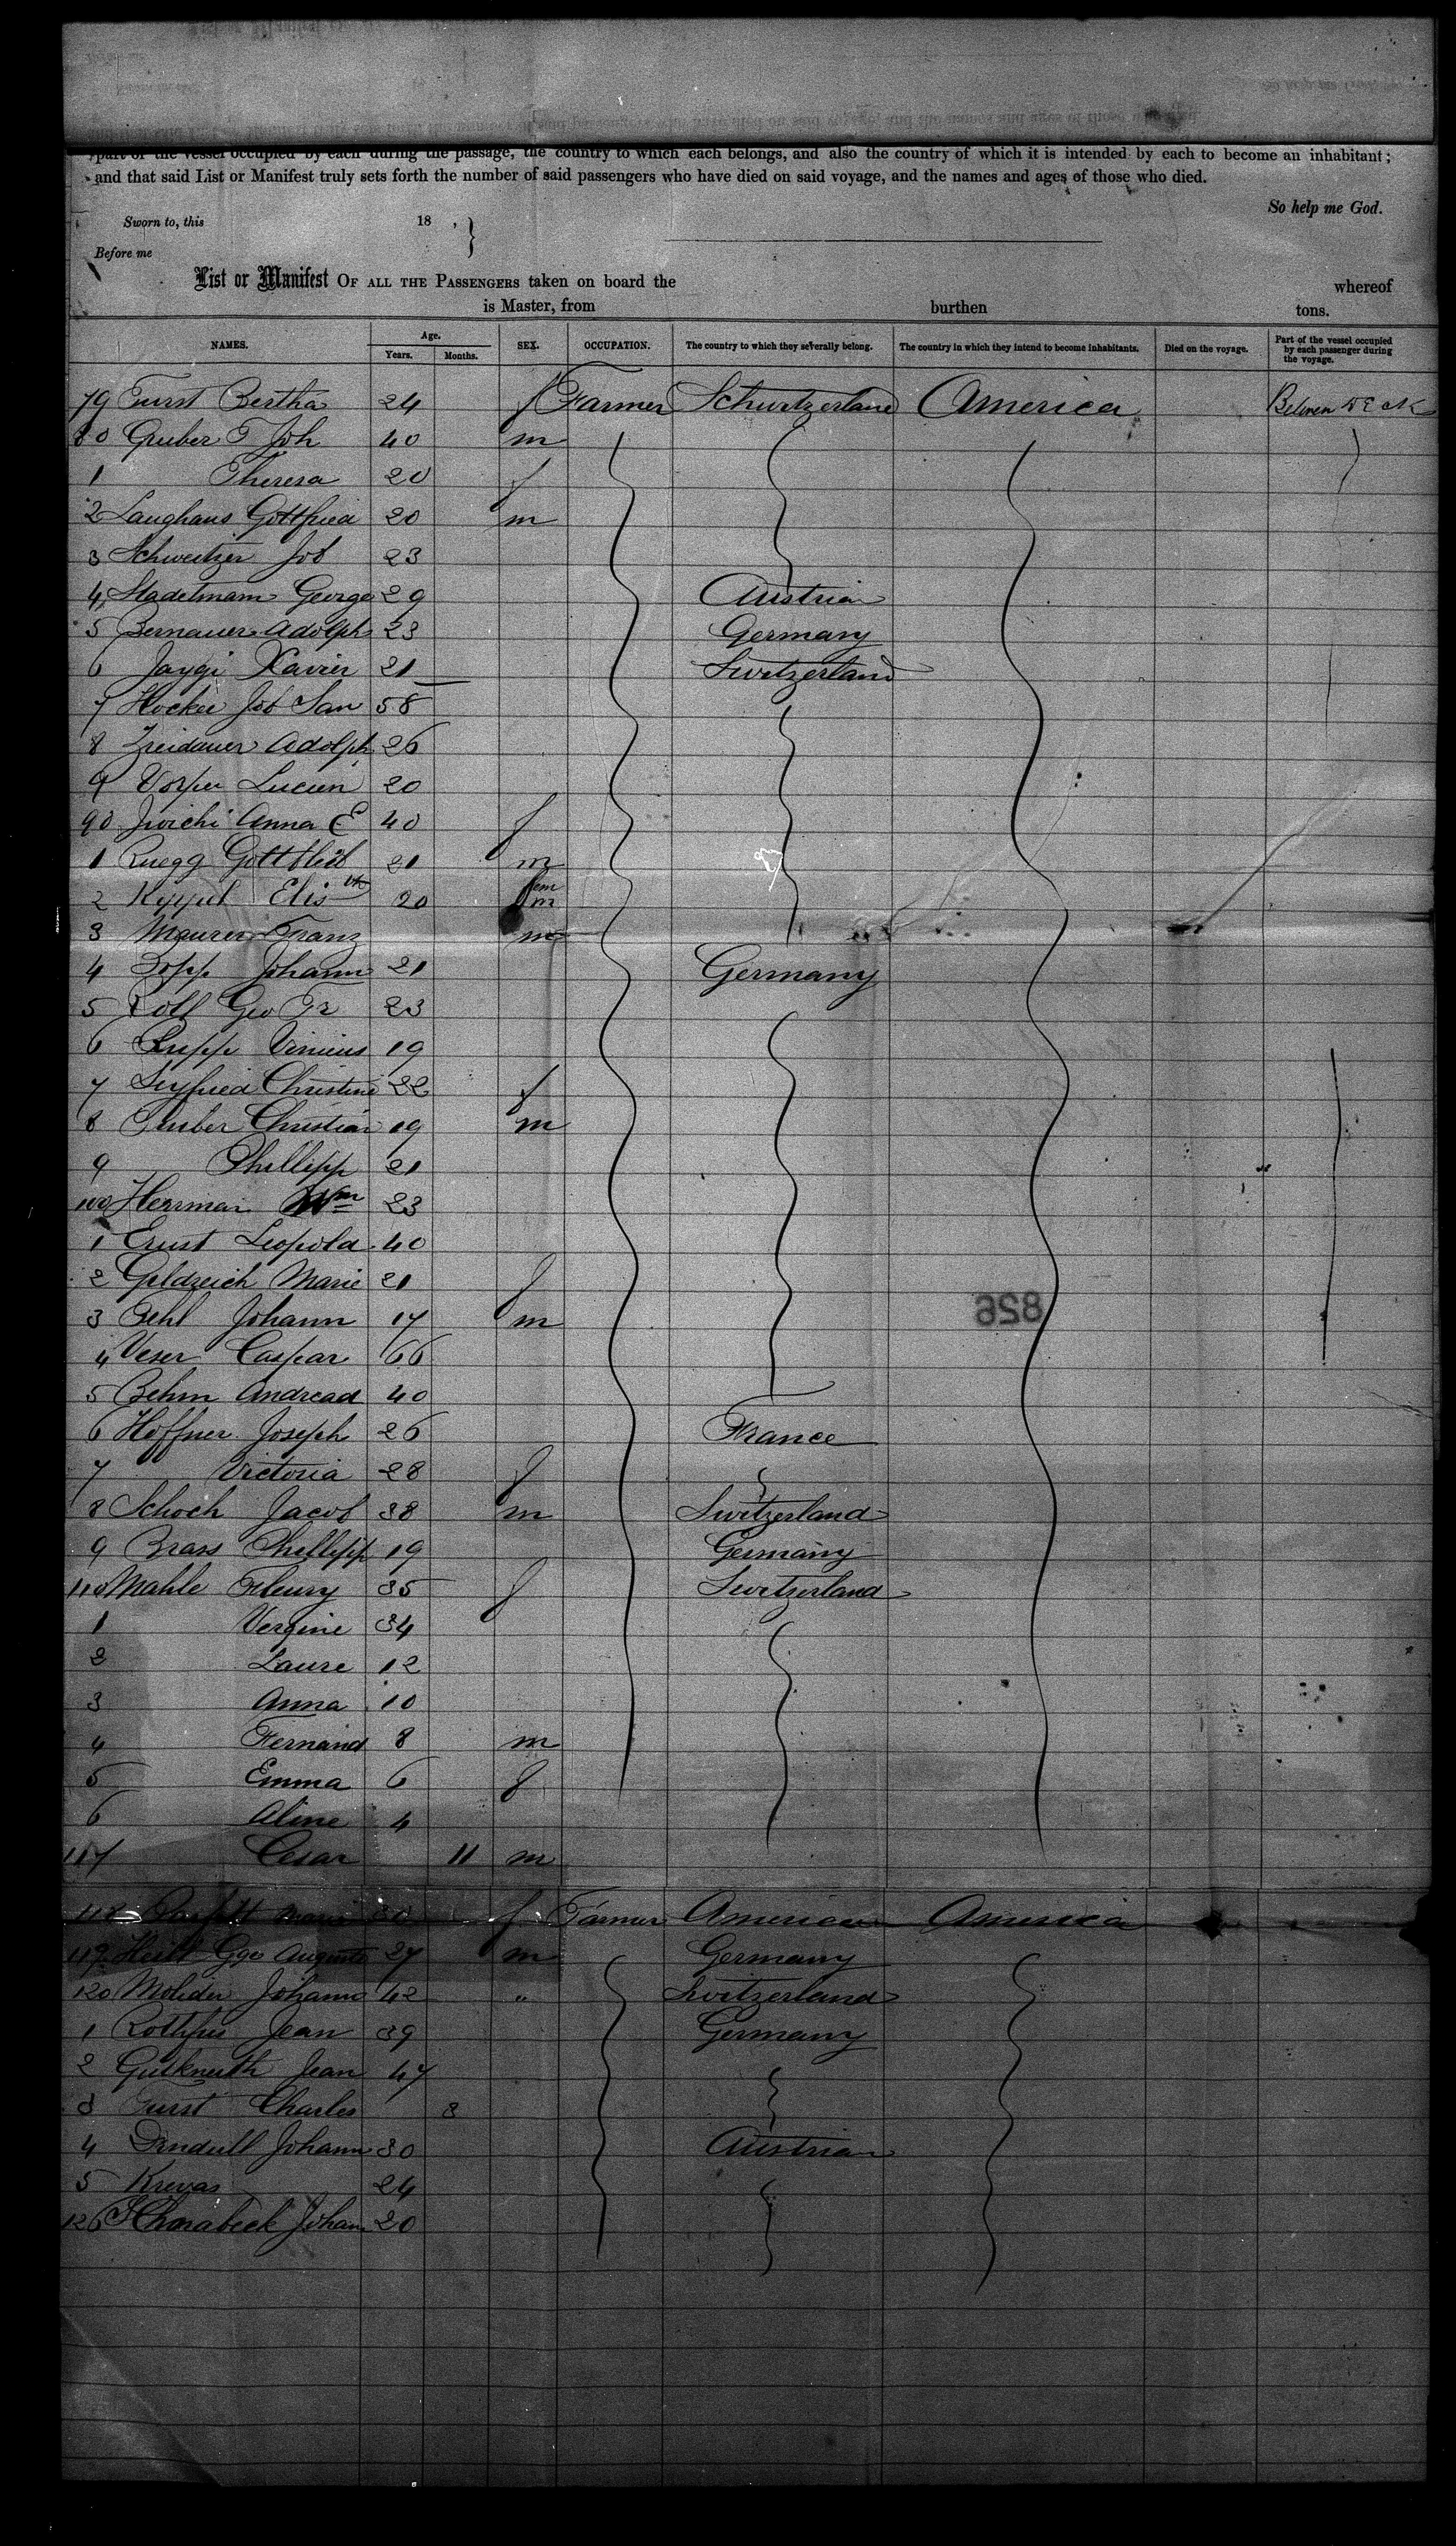 part of the vessel occupied by each during the passage, the country to which each belongs, and also the country of which it is intended by each to become an inhabitant;
and that said List or Manifest truly sets forth the number of said passengers who have died on said voyage, and the names and ages of those who died.
So help me God.
Sworn to, this 18 , }
Before me
List or Manifest OF ALL THE PASSENGERS taken on board the whereof
is Master, from burthen tons.
NAMES. Age. Years. Months. SEX. OCCUPATION. The country to which they severally belong. The country in which they intend to become inhabitants. Died on the voyage. Part of the vessel occupied by each passenger during the voyage.
79 Furst Bertha 24 f Farmer Schwitzerland America
80 Gruber F Joh 40 m
1 Theresa 20 f
2 Langhans Gottfried 20 m
3 Schweitzer Job 23
4 Stadelmam George 29 Austria
5 Bernauer Adolph 23 Germany
6 Jaygi Xavier 21 Switzerland
7 Hocker Job San 58
8 Zreidauer Adolph 26
9 Vorper Lucien 20
90 Anna E 40 f
1 Ruegg Gottflieb 21 m
2 Elis 20 fem
3 Maurer Franz m
4 Bopp Johann 21 Germany
5 Roll Geo Fr 23
6 Rupp Vinicus 19
7 Seyfried Christine 22 f
8 Gruber Christian 19 m
9 Phillipp 21
100 Herrman Wm 23
1 Ernst Leopold 40
2 Goldreich Marie 21 f
3 Gehl Johann 17 m
4 Veser Caspar 66
5 Behm Andread 40
826
6 Hoffner Joseph 26 France
7 Victoria 28 f
8 Schoch Jacob 38 m Switzerland
9 Brass Phillipp 19 Germany
110 Mahle Fleury 35 f Switzerland
1 Vergine 34
2 Laure 12
3 Anna 10
4 Fernand 8 m
5 Emma 6 f
6 Aline 4
117 Cesar 11 m
118 Marie 30 f Farmer America America
119 Geo Auguste 27 m Germany
120 Molider Johann 42 " Switzerland
1 Jean 39 Germany
2 Gutkneith Jean 47
3 Furst Charles 8
4 Johann 30 Austria
5 Krevas 24
126 Johan 20